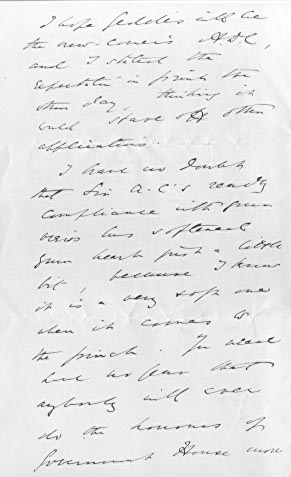 I hope Geddes will be
the new-comer's A.D.C,
and I stated the
expectation in print the
other day, thinking it
would stave off other
applications.
I have no doubt
that Sir A.C's ready
compliance with your
views has softened
your heart just a little
bit, because I know
it is a very soft one
when it comes to
the pinch. You need
had no fear that
anybody will ever
do the honours of
Government House more